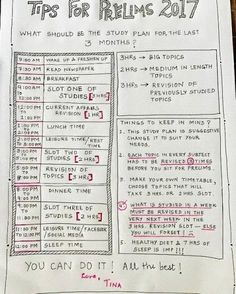 TIPS FOR PRELIMS 2017
WHAT SHOULD BE THE STUDY PLAN FOR THE LAST
3 MONTHS?
WAKE UP & FRESHEN UP
READ NEWSPAPER
BREAKFAST
SLOT ONE OF
STUDIES [3 HRS]
CURRENT AFFAIRS
REVISION [1 HR]
LUNCH TIME
LEISURE TIME/REST
TIME
SLOT TWO OF
STUDIES [2 HRS]
REVISION OF
TOPICS [3 HRS]
DINNER TIME
SLOT THREE OF
STUDIES [2 HRS]
LEISURE TIME/FACEBOOK
/SOCIAL MEDIA
SLEEP TIME
3HRS → BIG TOPICS
2HRS → MEDIUM IN LENGTH
TOPICS
3HRS → REVISION OF
PREVIOUSLY STUDIED
TOPICS
THINGS TO KEEP IN MIND?
1. THIS STUDY PLAN IS SUGGESTIVE
CHANGE IT IF SUIT YOUR
NEEDS.
2. EACH TOPIC IN EVERY SUBJECT
HAS TO BE REVISED TIMES
BEFORE YOU SIT FOR PRELIMS
3. MAKE YOUR OWN TIMETABLE,
CHOOSE TOPICS THAT WILL
TAKE 3 HRS OR 2 HRS SLOT.
4. WHAT IS STUDIED IN A WEEK
MUST BE REVISED IN THE
VERY NEXT WEEK IN THE
3 HRS. REVISION SLOT — ELSE
YOU WILL FORGET!
5. HEALTHY DIET & 7 HRS OF
SLEEP IS IMP!!!
YOU CAN DO IT! All the best!
Love,
Tina